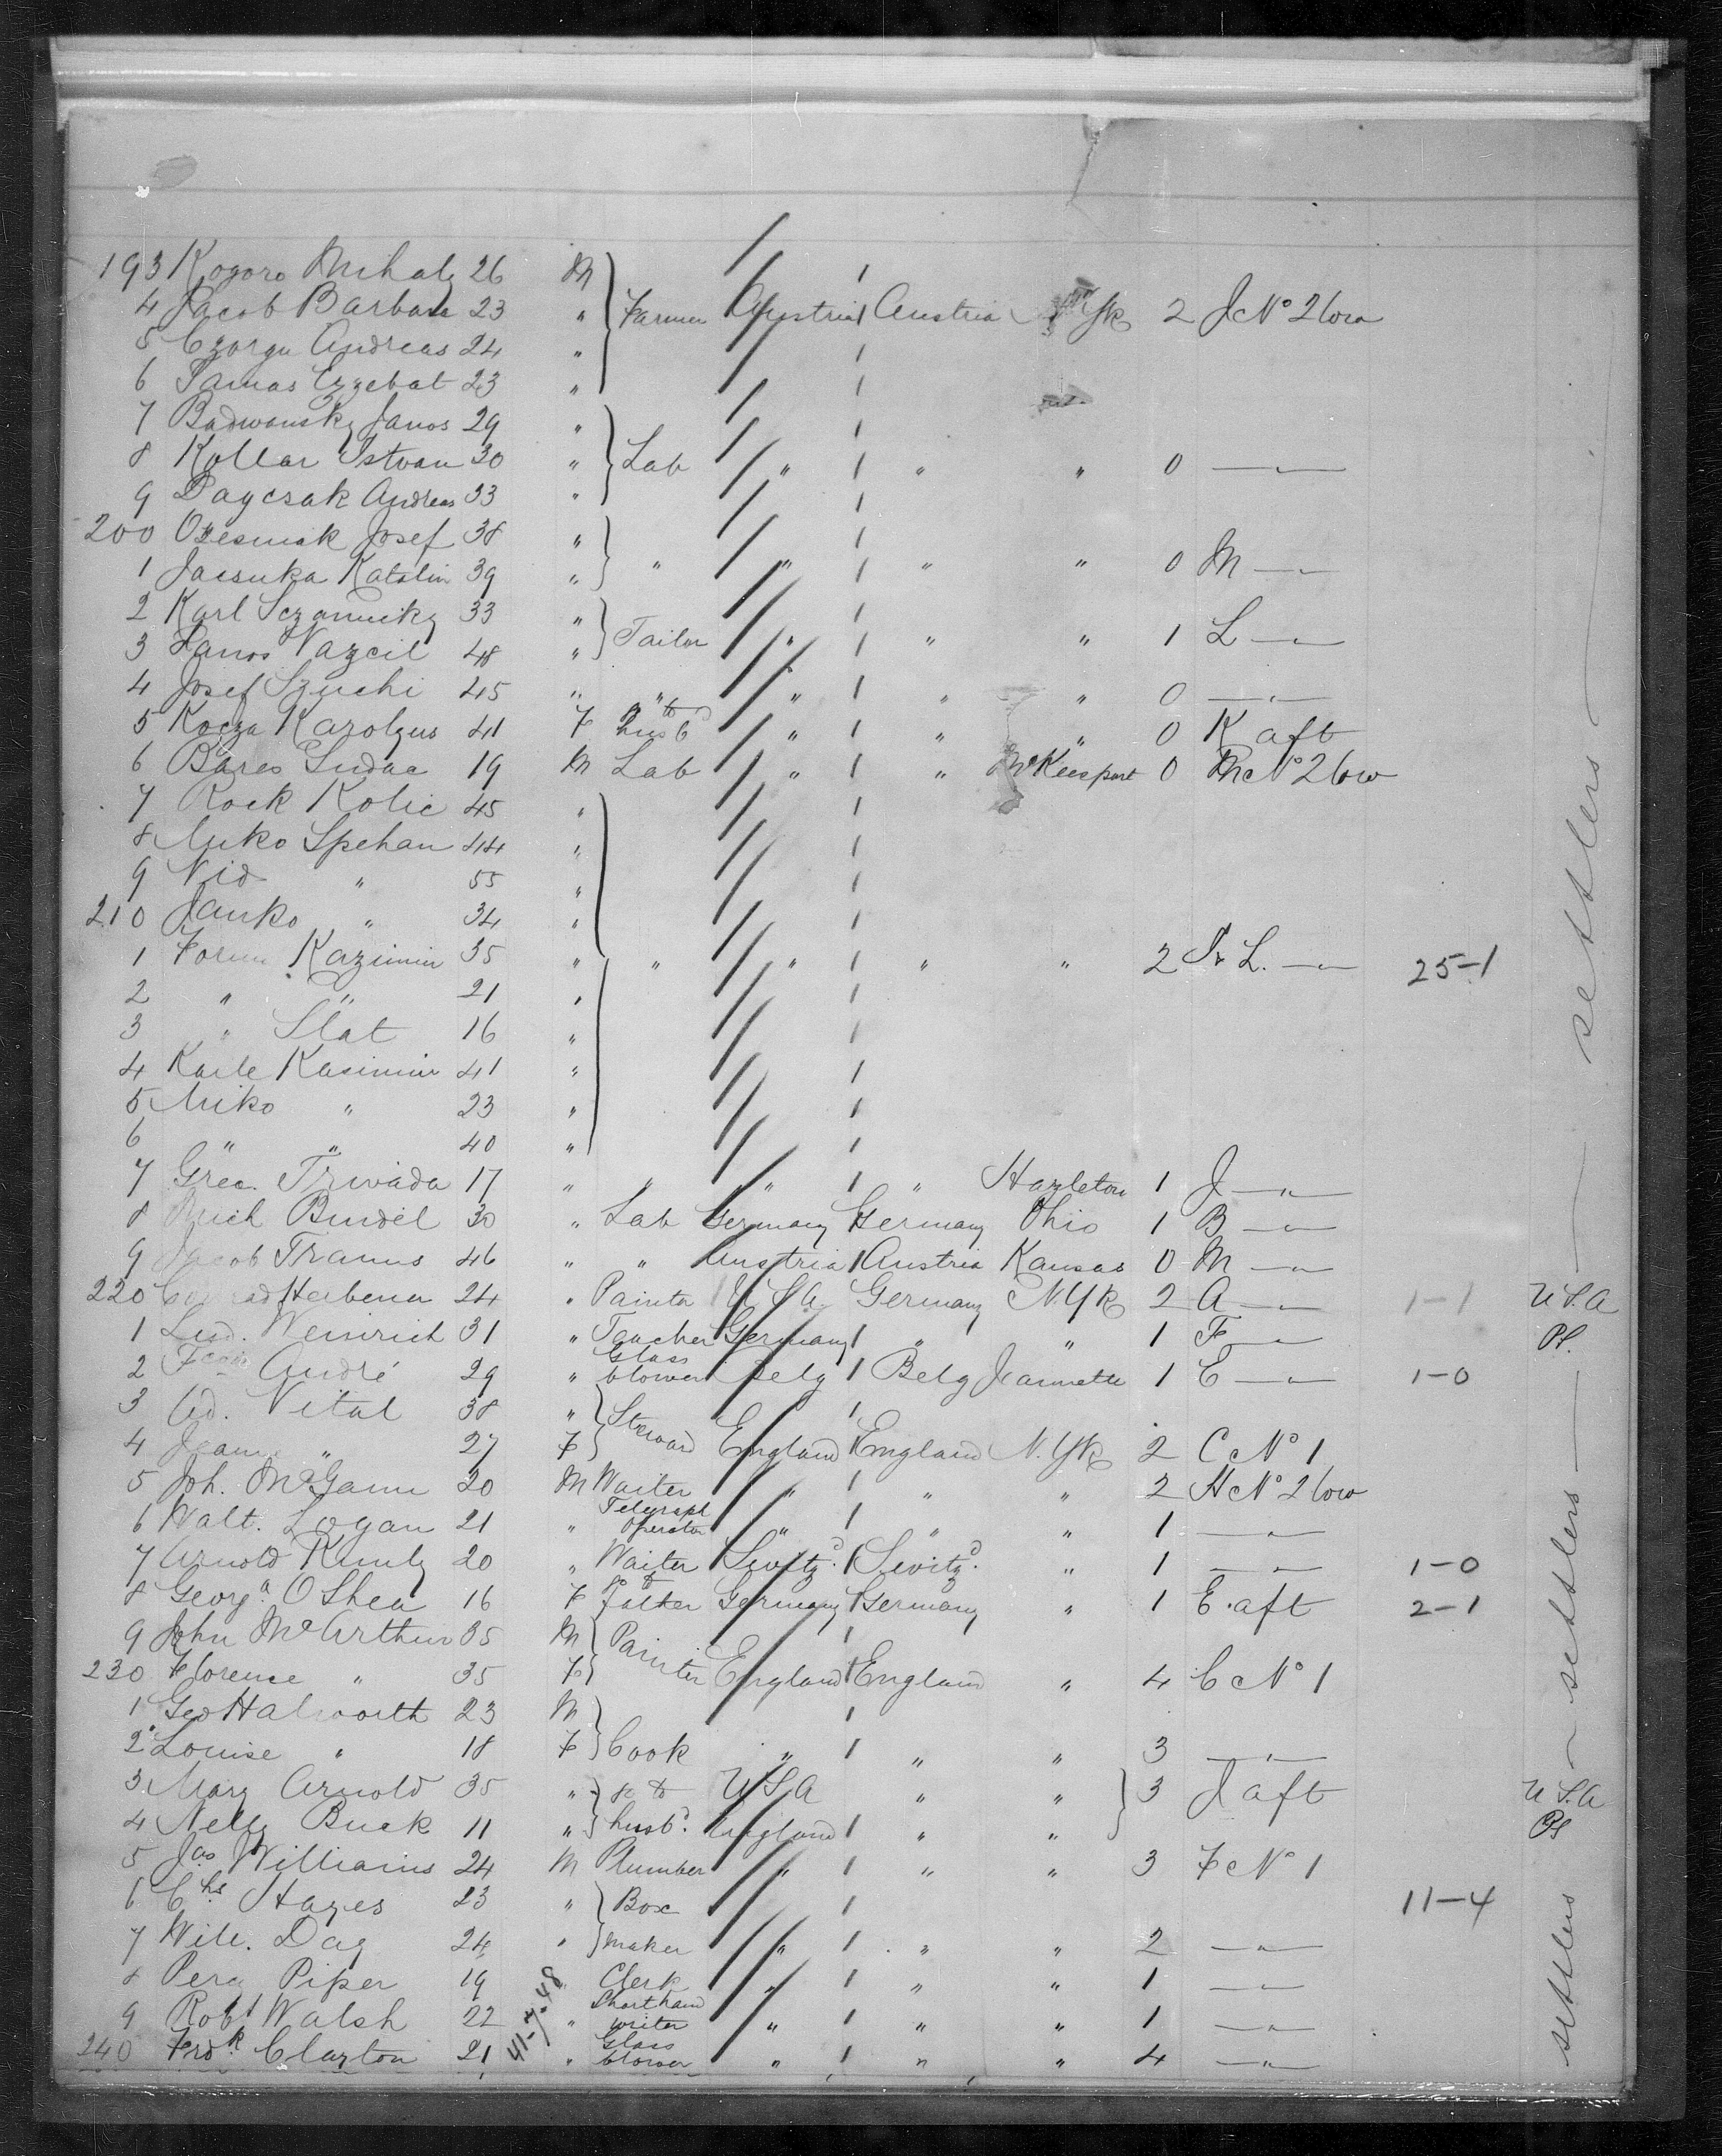 193 Kogoro Mihaly 26 M
4 Jacob Barbara 23 " Farmer Austria Austria N Yk 2 J No 2 low
5 Czorgu Andreas 24 "
6 Tamas Erzebat 23 "
7 Badwonsky Janos 29 "
8 Kollar Istvan 30 " Lab " " " 0 — " —
9 Daycsak Andreas 33 "
200 Ozesmak Josef 38 "
1 Jacsuka Katalin 39 " " " " " 0 M — " —
2 Karl 33 "
3 Janos Vazcil 48 " Tailor " " " 1 L — " —
4 Josef Szuchi 45 " " " " " 0 — " —
5 Kocza Karolyus 41 F to husbd " " " 0 K aft
6 Bares Gudac 19 M Lab " " McKeesport 0 M No 2 low
7 Rock Kolic 45 "
8 Miko Spehan 44 "
9 Vid " 55 "
210 Janko " 34 "
1 Kazimir 35 " " " " " 2 I & L. — " — 25-1
2 " " 21 "
3 " Slat 16 "
4 Karle Kasimir 41 "
5 Miko " 23 "
6 " " 40 "
7 Grec. 17 " " " " Hazleton 1 J — " —
8 Mich Bindel 30 " Lab Germany Germany Ohio 1 B — " —
9 Jacob Tramus 46 " " Austria Austria Kansas 0 M — " —
220 Conrad Herbener 24 " Painter U S A Germany N. Yk 2 A — " — 1-1 U S. A
1 Lud. Weinrich 31 " Teacher Germany " " 1 F — " — Pl.
2 André 29 " Glass blower Belg Belg Jeannette 1 E — " — 1-0
3 Ad. Vital 38 "
4 Jeanne " 27 F Steward England England N. Yk 2 C No 1
5 Joh. McGann 20 M Waiter " " " 2 H No 2 low
6 Walt. Logan 21 " Telegraph Operator " " " 1 — " —
7 Arnold Kundy 20 " Waiter Switzd. Switzd. " 1 — " — 1-0
8 Georga. O'Shea 16 F to father Germany Germany " 1 E. aft 2-1
9 John McArthur 35 M
230 Florence " 35 F Painter England England " 4 C No 1
1 Geo Halworth 23 M
2 Louise " 18 F Cook " " " 3 — " —
3 Mary Arnold 35 " to U S A " " 3 J aft U S. A
4 Nelly Buck 11 " husbd. England " " Pl
5 Jas Williams 24 M Plumber " " " 3 F No 1
6 Chs. Hayes 23 " Box 11-4
7 Will. Day 24 " maker " " " 2 — " —
8 Percy Piper 19 " Clerk " " " 1 — " —
9 Robt Walsh 22 " Shorthand writer " " " 1 — " —
240 Fredk. Clayton 21 " Glass blower " " " 4 — " —
41-7.48
settlers
settlers
settlers